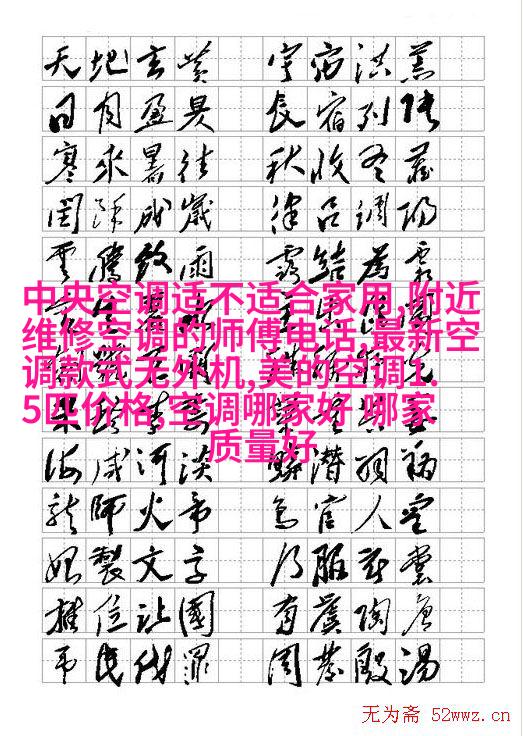 天地玄黄 宇宙洪荒
日月盈昃 辰宿列張
寒來暑往 秋收冬藏
閏餘成歲 律吕調陽
雲騰致雨 露結為霜
中央空调适不适合家用,附近
维修空调的师傅电话,最新空
调款式无外机,美的空调1.
5匹价格,空调哪家好 哪家
质量好
海咸河淡 鳞潜羽翔
龍師火帝 鸟官人皇
始製文字 乃服衣裳
推位让國 有虞陶唐
吊民伐罪 周發殷湯
无为斋 52wwz.cn